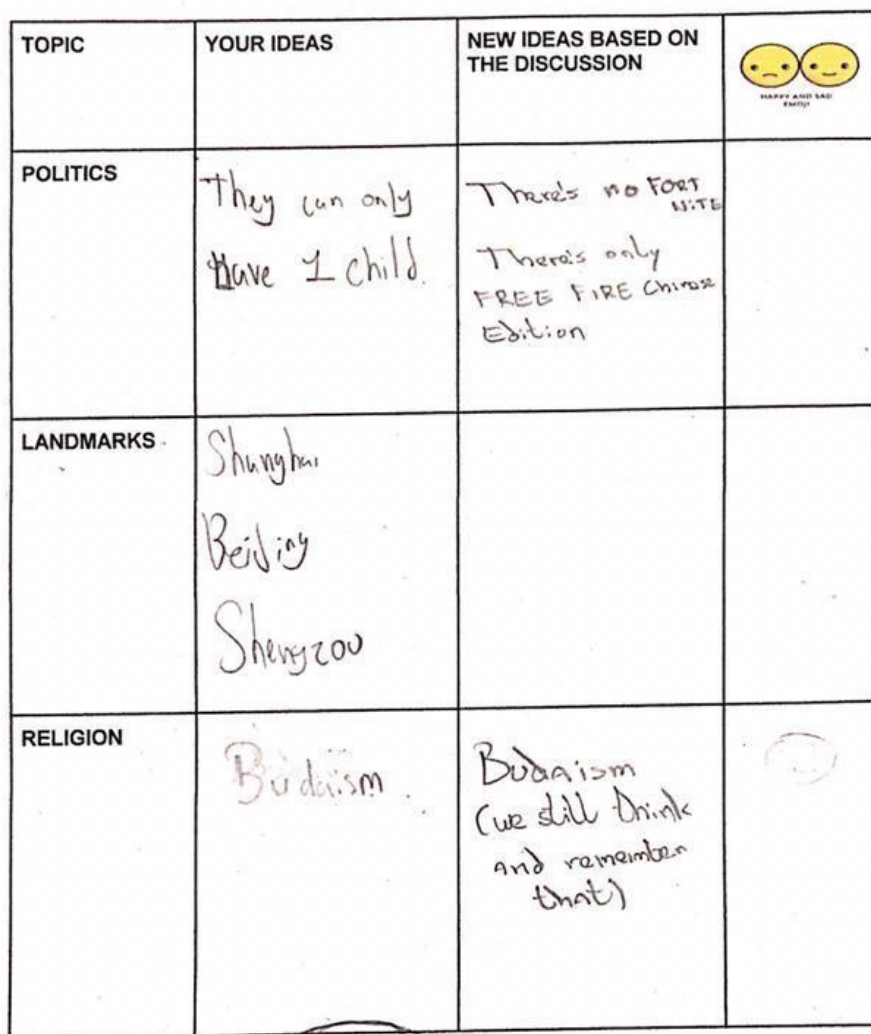 TOPIC
YOUR IDEAS
NEW IDEAS BASED ON
THE DISCUSSION
HAPPY AND SAD
EMOJI
POLITICS
They can only
Have 1 child.
There's no FORT
NITE
There's only
FREE FIRE Chinese
Edition
LANDMARKS
Shanghai
Beijing
Shengzou
RELIGION
Budaism
Budaism
(we still think
and remember
that)